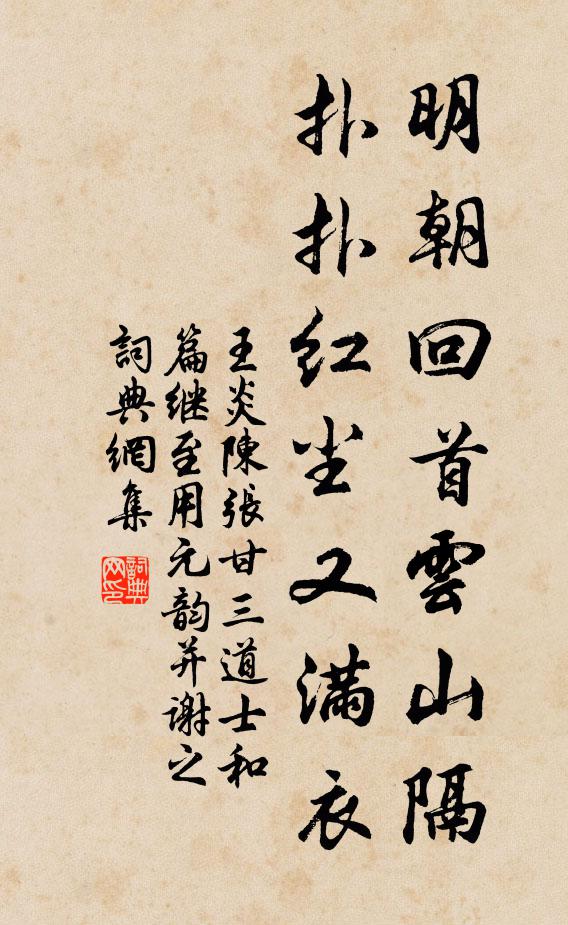 明朝回首雲山隔
扑扑红尘又满衣
王炎陳張甘三道士和
篇继至用元韵并谢之
詞典網集
詞典
网印